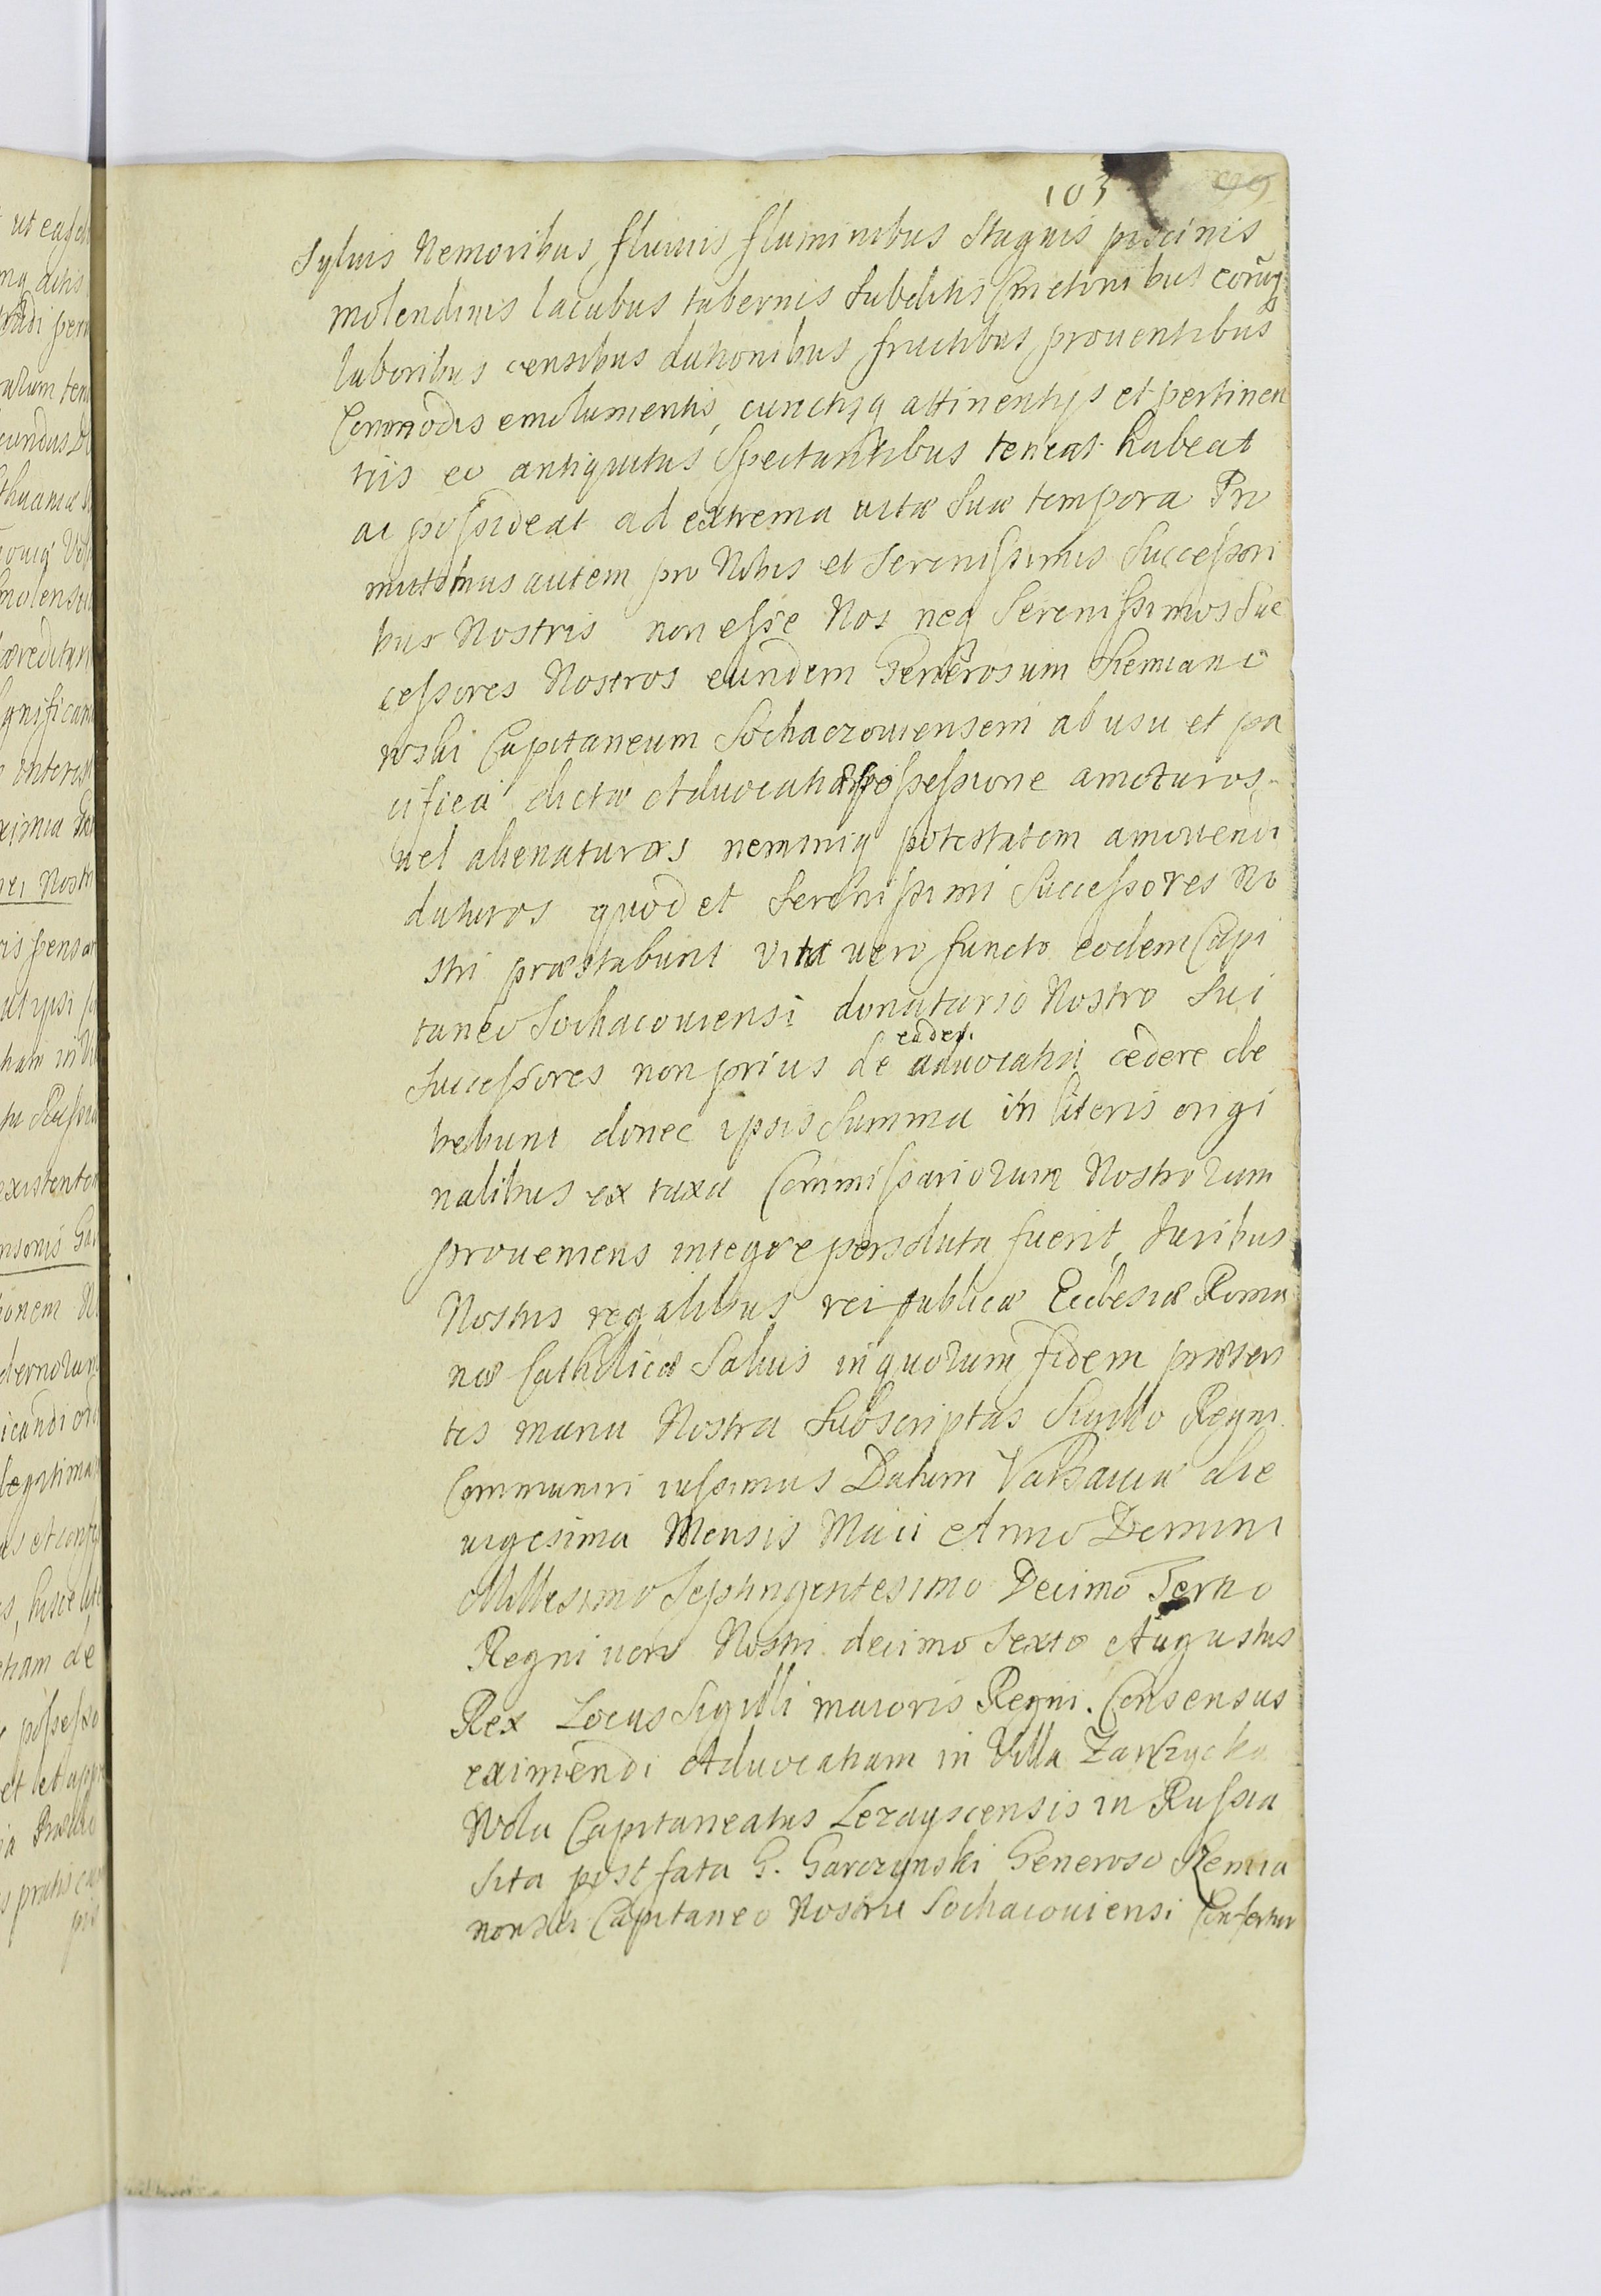 103 99
Syluis Nemoribus fluuiis fluminibus Stagnis piscinis
molendinis lacubus tabernis Subditis Cmetonibus eorūq
laboribus censibus dationibus fructibus prouentibus
Commodis emolumentis, cunctisq attinentijs et pertinen
tiis eo antiquitus Spectantibus teneat habeat
ac possideat ad extrema uitæ Suæ tempora Pro
mittimus autem pro Nobis et Serenissimis Successori
bus Nostris non esse Nos neq Serenissimos Suc
cessores Nostros eundem Generosum Szemiano
wski Capitaneum Sochaczouiensem ab usu et pa
cifica dictæ Aduocatiæ possessione amoturos
uel alienaturos neminiq potestatem amouendi
daturos quod et Serenissimi Successores No
stri præstabunt vita uero functo eodem Capi
taneo Sochacouiensi donatario Nostro Sui
Successores non prius de eadem aduocatia cedere de
bebunt donec ipsis Summa in literis origi
nalibus ex taxa Commissariorum Nostrorum
proueniens integre persoluta fuerit, Iuribus
Nostris regalibus reipublicæ Ecclesiæ Roma
næ Catholicæ Saluis in quorum fidem præsen
tes manu Nostra Subscriptas Sigillo Regni
Communiri iussimus Datum Varsauiæ die
uigesima Mensis Maii Anno Domini
Millesimo Septingentesimo Decimo Terno
Regni uero Nostri decimo Sexto Augustus
Rex Locus Sigilli maioris Regni. Consensus
eximendi Aduocatiam in Villa
Wola Capitaneatus Lezayscensis in Russia
Sita post fata G. Garczynski Generoso Szemia
nowski Capitaneo Nostro Sochacouiensi Confertur